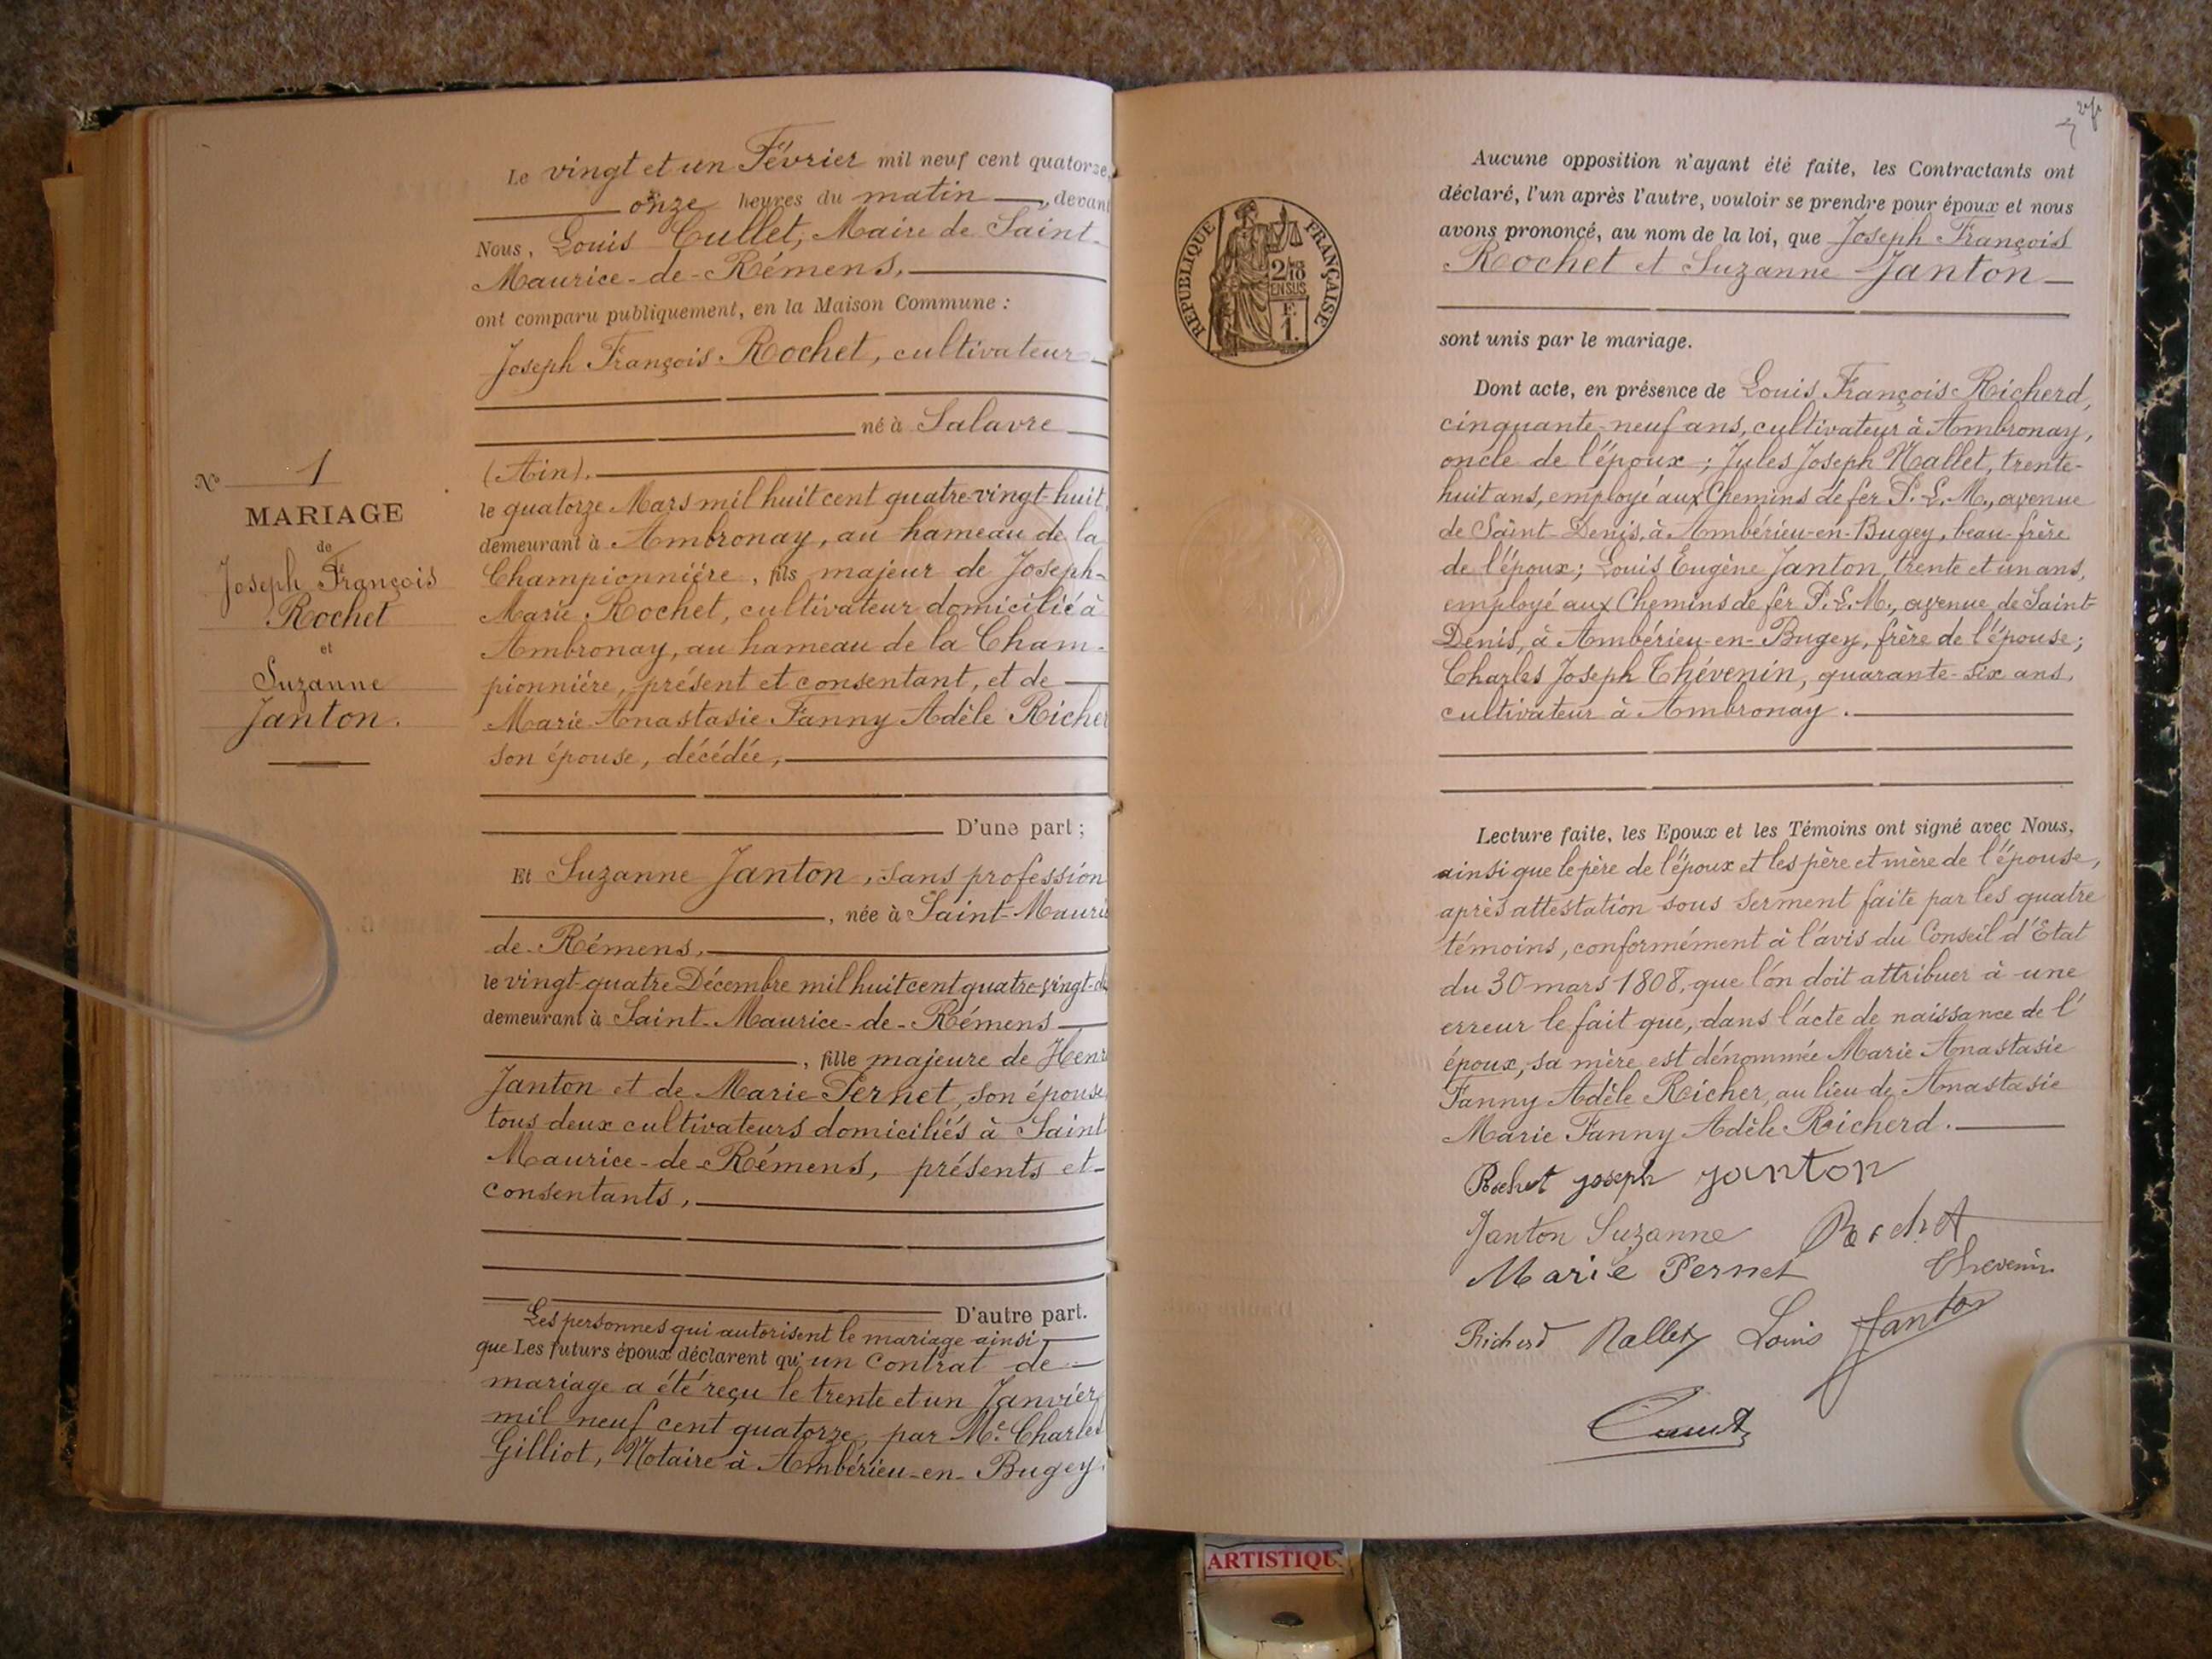 N° 1
MARIAGE
de
Joseph François
Rochet
et
Suzanne
Janton.
Le vingt et un Février mil neuf cent quatorze,
onze heures du matin, devant
Nous, Louis Cullet, Maire de Saint-
Maurice-de-Rémens,
ont comparu publiquement, en la Maison Commune :
Joseph François Rochet, cultivateur
né à Salavre
(Ain).
le quatorze Mars mil huit cent quatre-vingt-huit,
demeurant à Ambronay, au hameau de la
Championniére, fils majeur de Joseph-
Marie Rochet, cultivateur domicilié à
Ambronay, au hameau de la Cham-
pionniére, présent et consentant, et de
Marie Anastasie Fanny Adèle Richer
son épouse, décédée,
D'une part ;
Et Suzanne Janton, sans profession
, née à Saint-Mauri
de-Rémens,
le vingt-quatre Décembre mil huit cent quatre-vingt-d
demeurant à Saint-Maurice-de-Rémens
, fille majeure de Henr
Janton et de Marie Pernet, son épouse,
tous deux cultivateurs domiciliés à Saint
Maurice-de-Rémens, présents et
consentants,
D'autre part.
Les personnes qui autorisent le mariage ainsi
que Les futurs époux déclarent qu'un contrat de
mariage a été reçu le trente et un Janvier
mil neuf cent quatorze, par Me. Charles
Gilliot, Notaire à Ambérieu-en-Bugey.
REPUBLIQUE FRANÇAISE
2/10
EN SUS
F.
1.
Aucune opposition n'ayant été faite, les Contractants ont
déclaré, l'un après l'autre, vouloir se prendre pour époux et nous
avons prononcé, au nom de la loi, que Joseph François
Rochet et Suzanne Janton
sont unis par le mariage.
Dont acte, en présence de Louis François Richerd,
cinquante-neuf ans, cultivateur à Ambronay,
oncle de l'époux ; Jules Joseph Nallet, trente-
huit ans, employé aux Chemins de fer P.L.M., avenue
de Saint-Denis, à Ambérieu-en-Bugey, beau-frère
de l'époux ; Louis Eugène Janton, trente et un ans,
employé aux Chemins de fer P.L.M., avenue de Saint-
Denis, à Ambérieu-en-Bugey, frère de l'épouse ;
Charles Joseph Thévenin, quarante-six ans,
cultivateur à Ambronay.
Lecture faite, les Epoux et les Témoins ont signé avec Nous,
ainsi que le père de l'époux et les père et mère de l'épouse,
après attestation sous serment faite par les quatre
témoins, conformément à l'avis du Conseil d'Etat
du 30 mars 1808, que l'on doit attribuer à une
erreur le fait que, dans l'acte de naissance de l'
époux, sa mère est dénommée Marie Anastasie
Fanny Adèle Richer, au lieu de Anastasie
Marie Fanny Adèle Richerd.
Rochet joseph janton
Janton Suzanne Rochet
Marie Pernet Thevenin
Richerd Nallet Louis Janton
ARTISTIQU